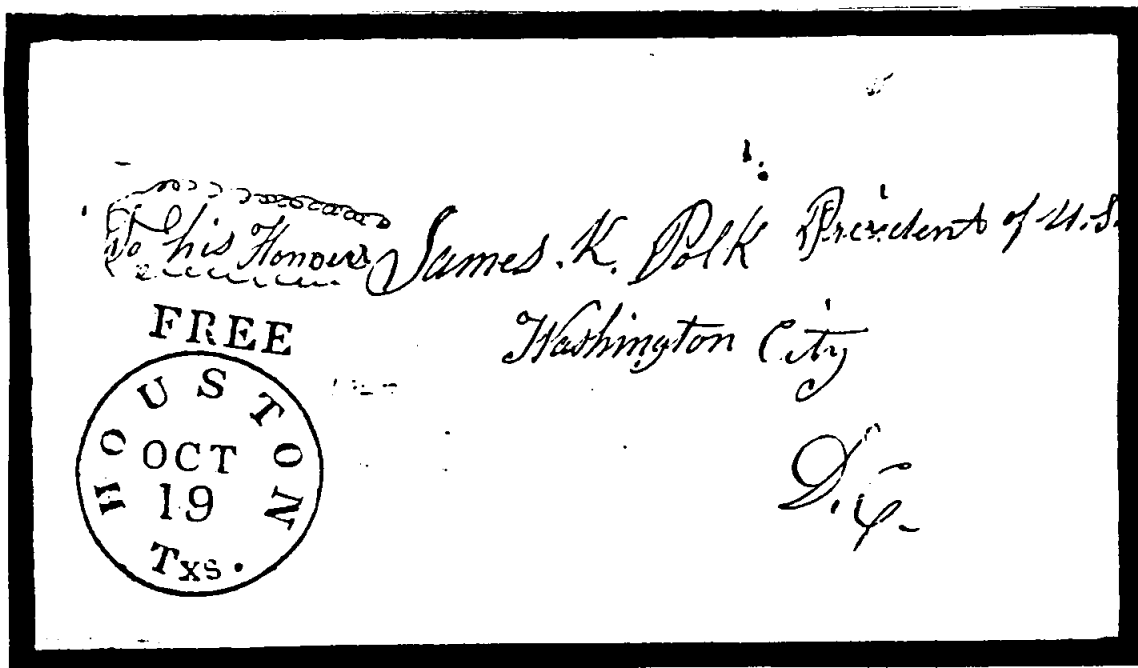 To his Honour James. K. Polk President of U.S.
Washington City
D.C.
FREE
HOUSTON
OCT
19
Txs.